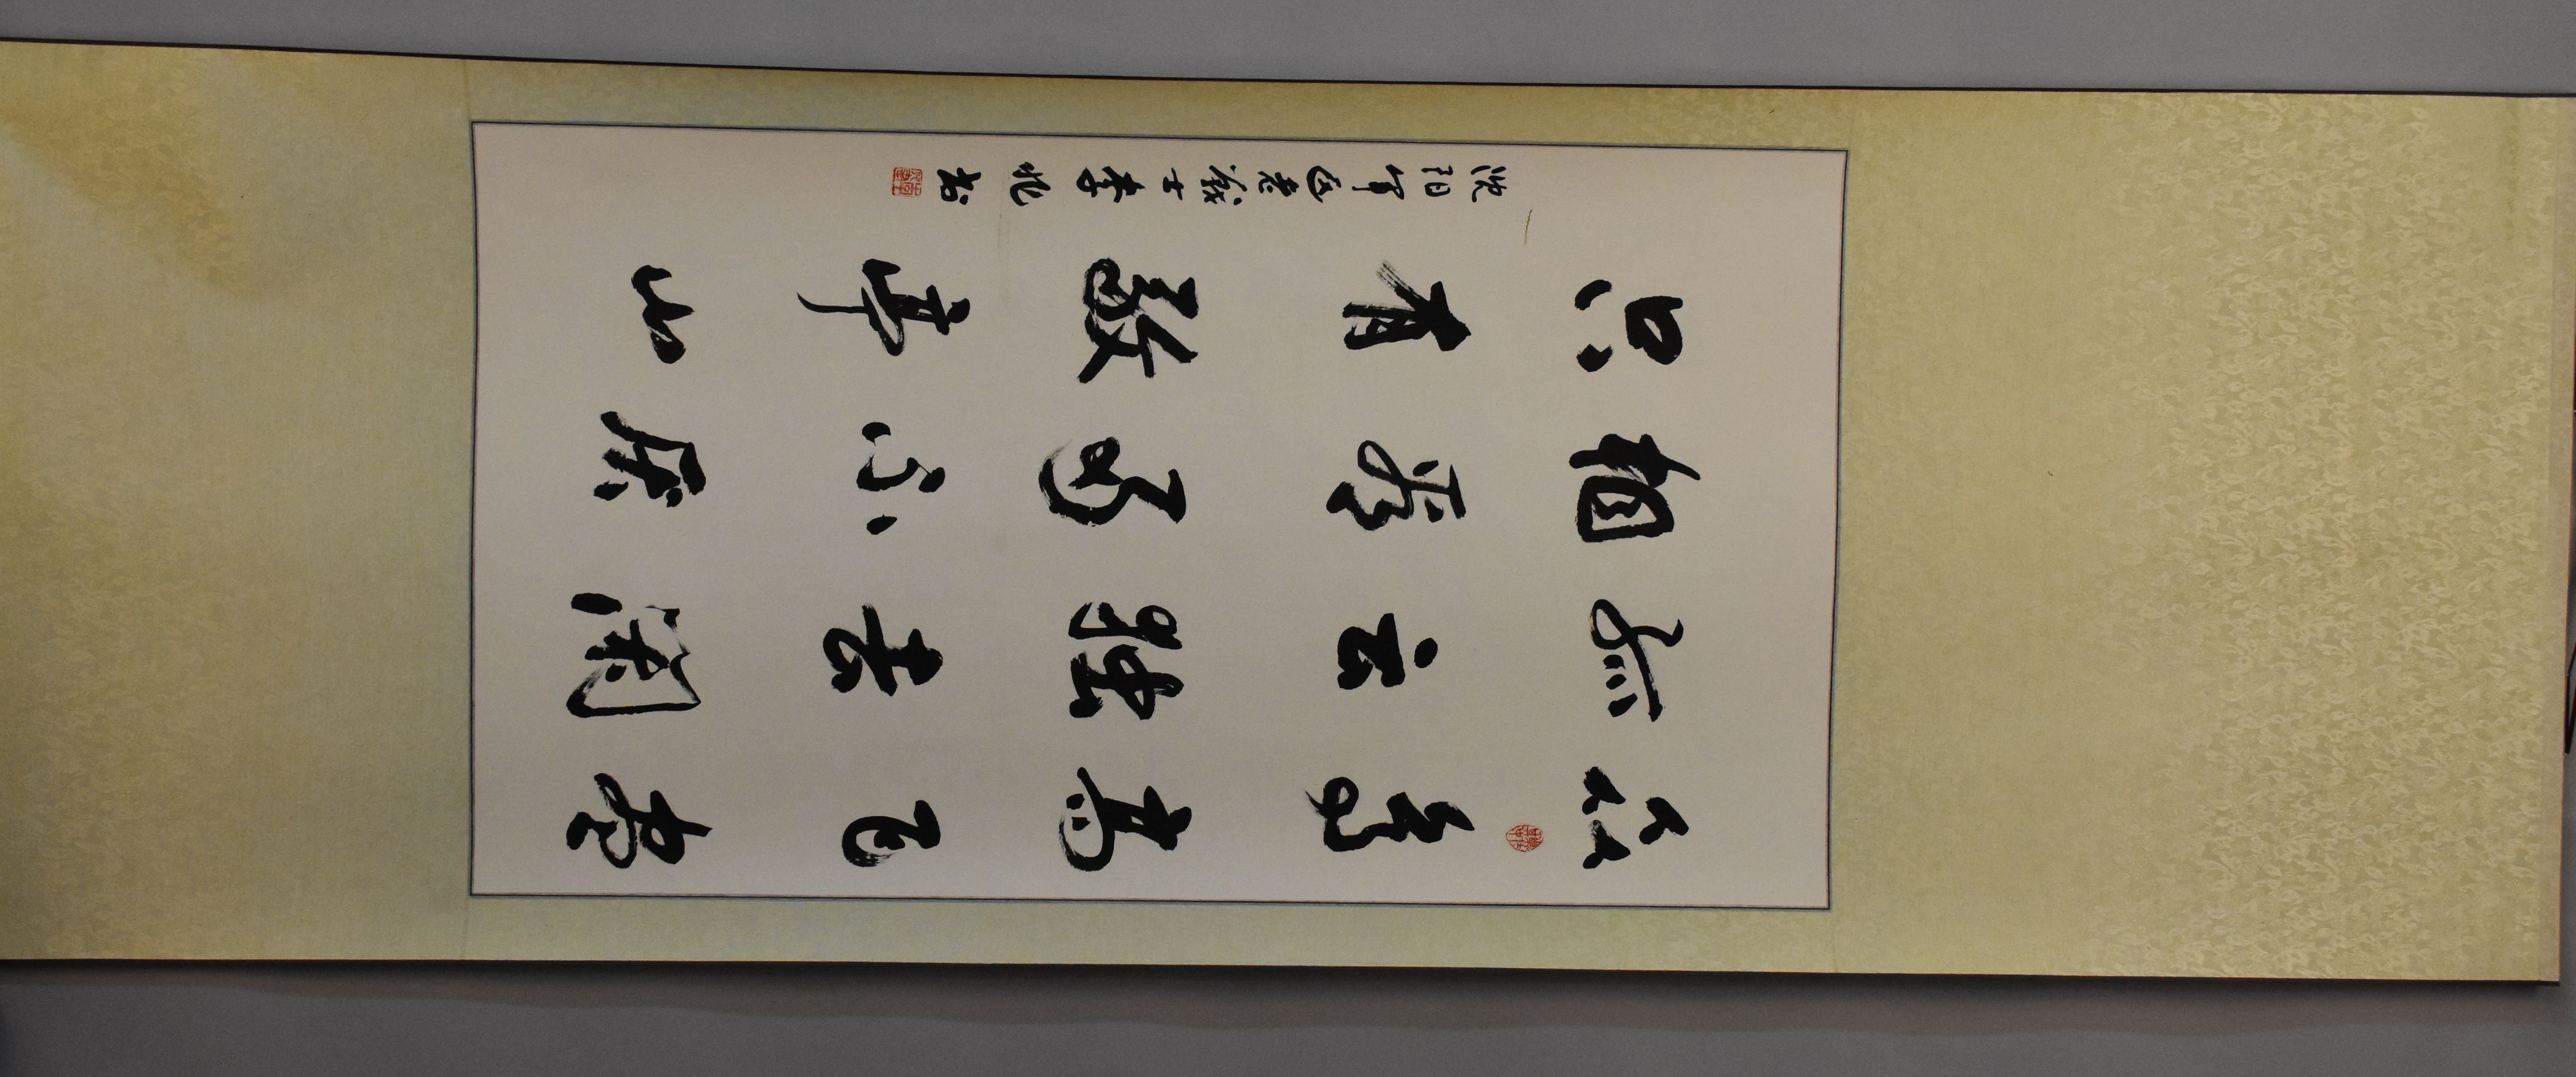 众鸟高飞尽
孤云独去闲
相看两不厌
只有敬亭山
沈阳军区老战士李兆书